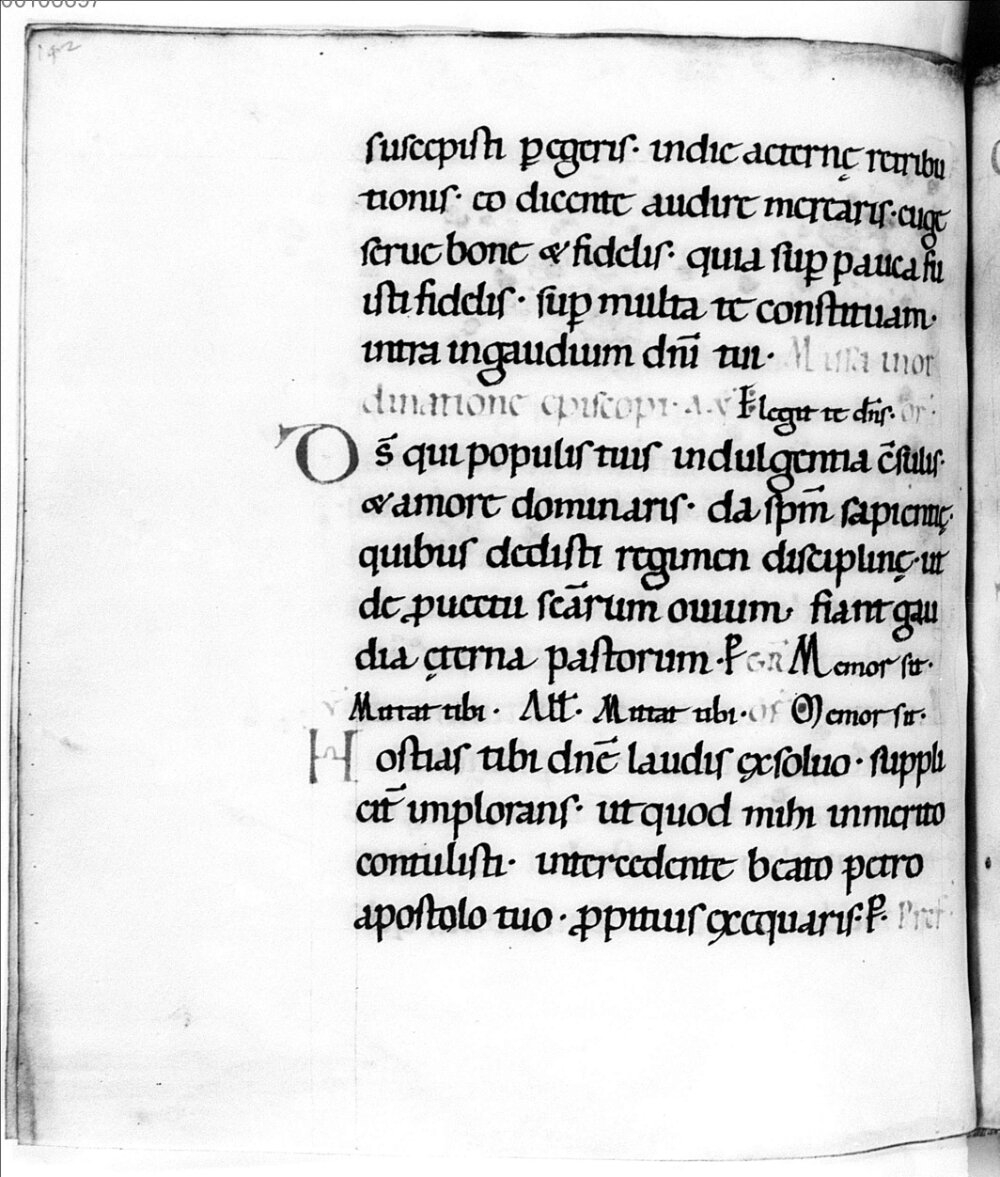 142
suscepisti ꝑegeris· indie aeternę retribu
tionis· eo dicente audire merearis· euge
serue bone & fidelis· quia suꝑ pauca fu
isti fidelis· suꝑ multa te constituam·
intra ingaudium dn̄i tui· Missa inor
dinatione episcopi· A· Elegit te dn̄s· or·
Ds̄ qui populis tuis indulgentia c̄sulis·
& amore dominaris· da sp̄m sapientię·
quibus dedisti regimen disciplinę· ut
de ꝓuectu sc̄arum ouium· fiant gau
dia ęterna pastorum· P̄ GR Memor sit·
V Mittat tibi· All̄· Mittat tibi· Of Memor sit·
Hostias tibi dn̄e laudis ęxsoluo· suppli
cit̄ implorans· ut quod mihi inmerito
contulisti· intercedente beato petro
apostolo tuo· ꝓpitius ęxequaris· P̄· Pref·